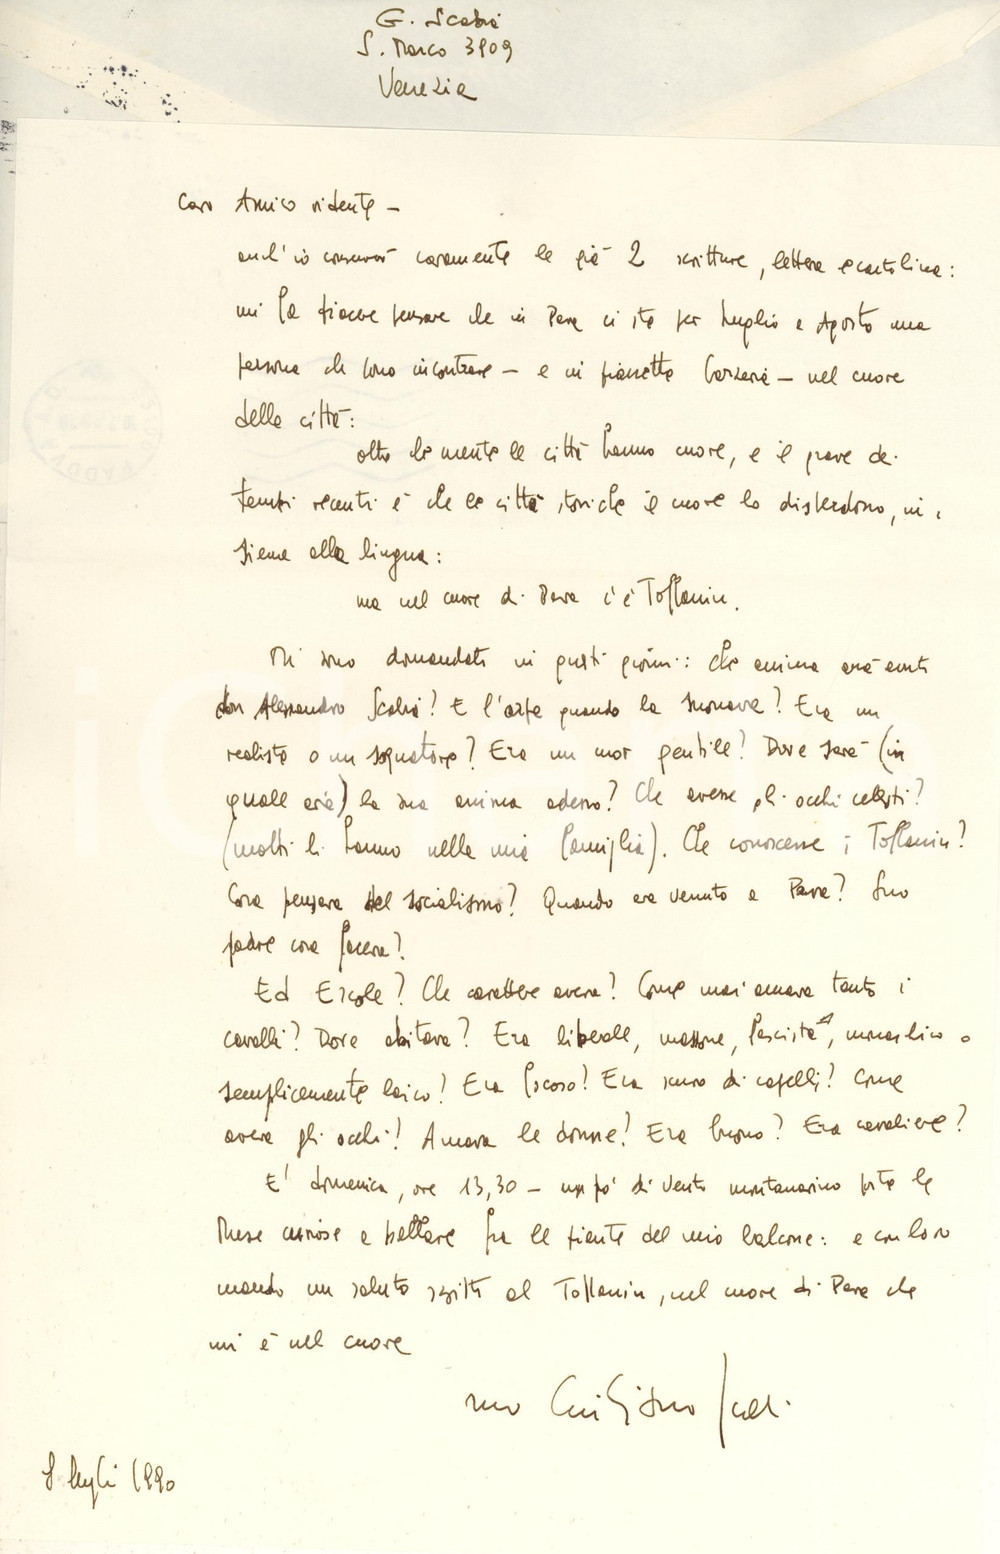 G. Scabia
S. Marco 3909
Venezia
Caro Amico ridente -
anch'io conservo caramente le già 2 scritture, lettera e cartolina:
mi fa piacere pensare che in Pava ci sta per luglio e Agosto una
persona da incontrare - e in piazzetta - nel cuore
della città:
oltre la mente le città hanno cuore, e il grave dei
tempi recenti è che le città storiche il cuore lo disperdono, in,
sieme alla lingua:
ma nel cuore di Pava c'è Toffanin.
Mi sono domandato in questi giorni: che anima avrà avuto
don Alessandro Scabia? E l'arpa quando la suonava? Era un
realista o un sognatore? Era un uomo gentile? Dove sarà (in
quale aria) la sua anima adesso? Che avesse gli occhi celesti?
(molti li hanno nella mia famiglia). Che conoscesse i Toffanin?
Cosa pensava del socialismo? Quando era venuto a Pava? Suo
padre cosa faceva?
Ed Ercole? Che carattere aveva? Come mai amava tanto i
cavalli? Dove abitava? Era liberale, massone, fascista, monarchico o
semplicemente laico? Era focoso? Era scuro di capelli? Come
aveva gli occhi? Amava le donne? Era buono? Era cavaliere?
E' domenica, ore 13,30 - un po' di vento montanarino porta le
Muse curiose a ballare fra le piante del mio balcone: e con loro
mando un saluto scritto al Toffanin, nel cuore di Pava che
mi è nel cuore
suo Giuliano Scabia
8 luglio 1990